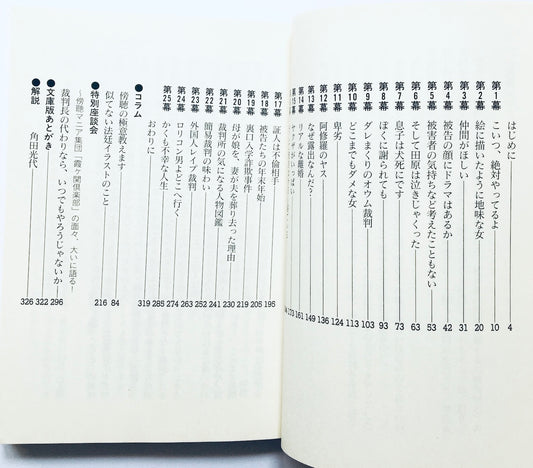 はじめに 4
第1幕 こいつ、絶対やってるよ 10
第2幕 絵に描いたように地味な女 20
第3幕 仲間がほしい 31
第4幕 被告の顔にドラマはあるか 42
第5幕 被害者の気持ちなど考えたこともない 53
第6幕 そして田原は泣きじゃくった 63
第7幕 息子は犬死にです 73
第8幕 ぼくに謝られても 93
第9幕 ダレまくりのオウム裁判 103
第10幕 どこまでもダメな女 113
第11幕 卑劣 124
第12幕 阿修羅のヤス 136
第13幕 なぜ露出なんだ? 149
第14幕 リアルな離婚 161
第15幕 173
第17幕 証人は不倫相手 195
第18幕 被告たちの年末年始 205
第19幕 裏口入学詐欺事件 219
第20幕 母が娘を、妻が夫を葬り去った理由 230
第21幕 裁判所の気になる人物図鑑 241
第22幕 簡易裁判の味わい 252
第23幕 外国人レイプ裁判 263
第24幕 ロリコン男よどこへ行く 274
第25幕 かくも不幸な人生 285
おわりに 319
●コラム
傍聴の極意教えます 84
似てない法廷イラストのこと 216
●特別座談会
～傍聴マニア集団「霞ヶ関倶楽部」の面々、大いに語る!
裁判長の代わりなら、いつでもやろうじゃないか 296
●文庫版あとがき 322
●解説 角田光代 326